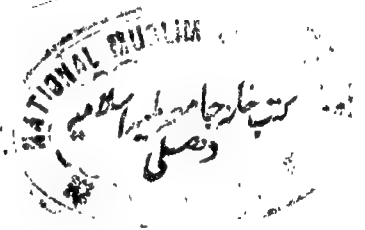 NATIONAL MUSLIM
کتب خانہ جامعہ ملیہ اسلامیہ
دہلی